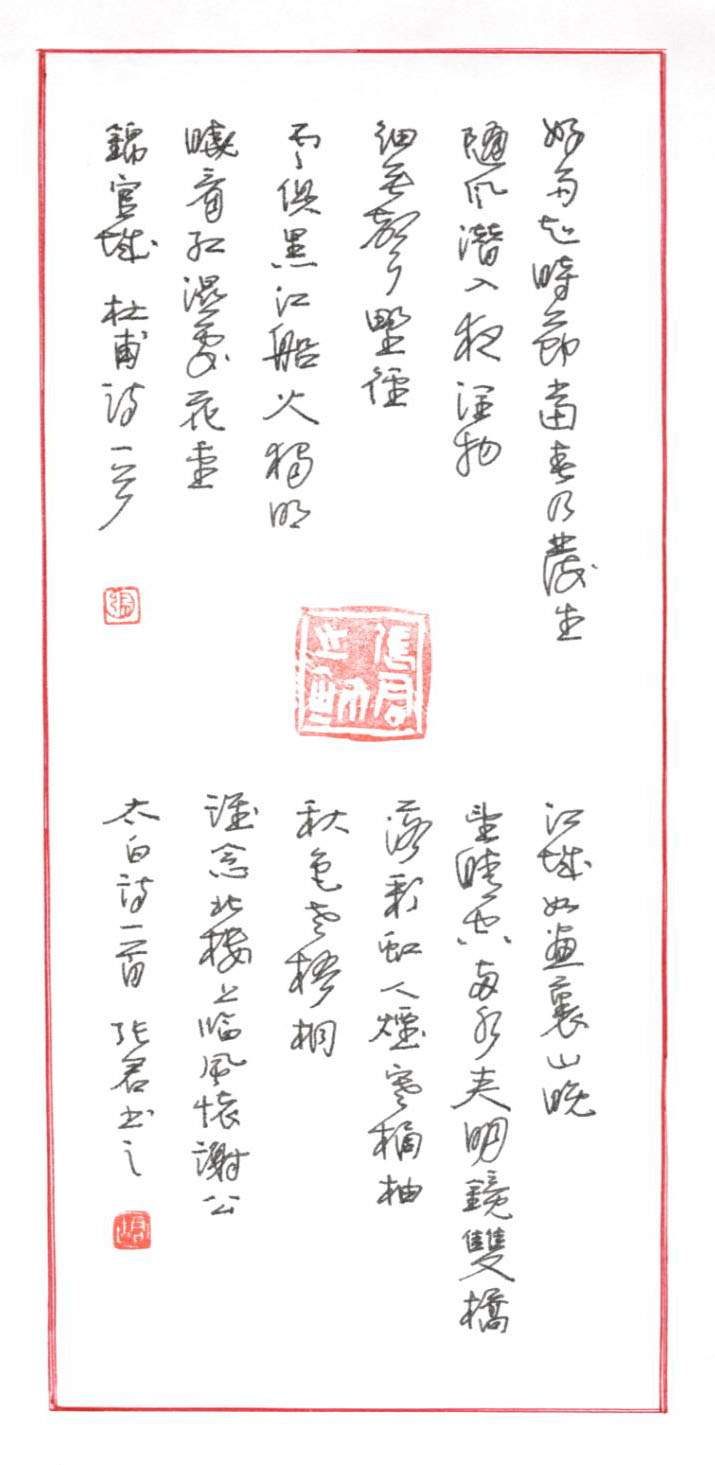 好雨知時節當春乃發生
隨风潛入夜潤物
細無聲野徑
雲俱黑江船火獨明
曉看紅濕處花重
錦官城 杜甫詩一首
江城如畫裏山晚
望晴空兩水夾明鏡雙橋
落彩虹人煙寒橘柚
秋色老梧桐
誰念北樓上臨風懷謝公
太白詩一首 張君書之